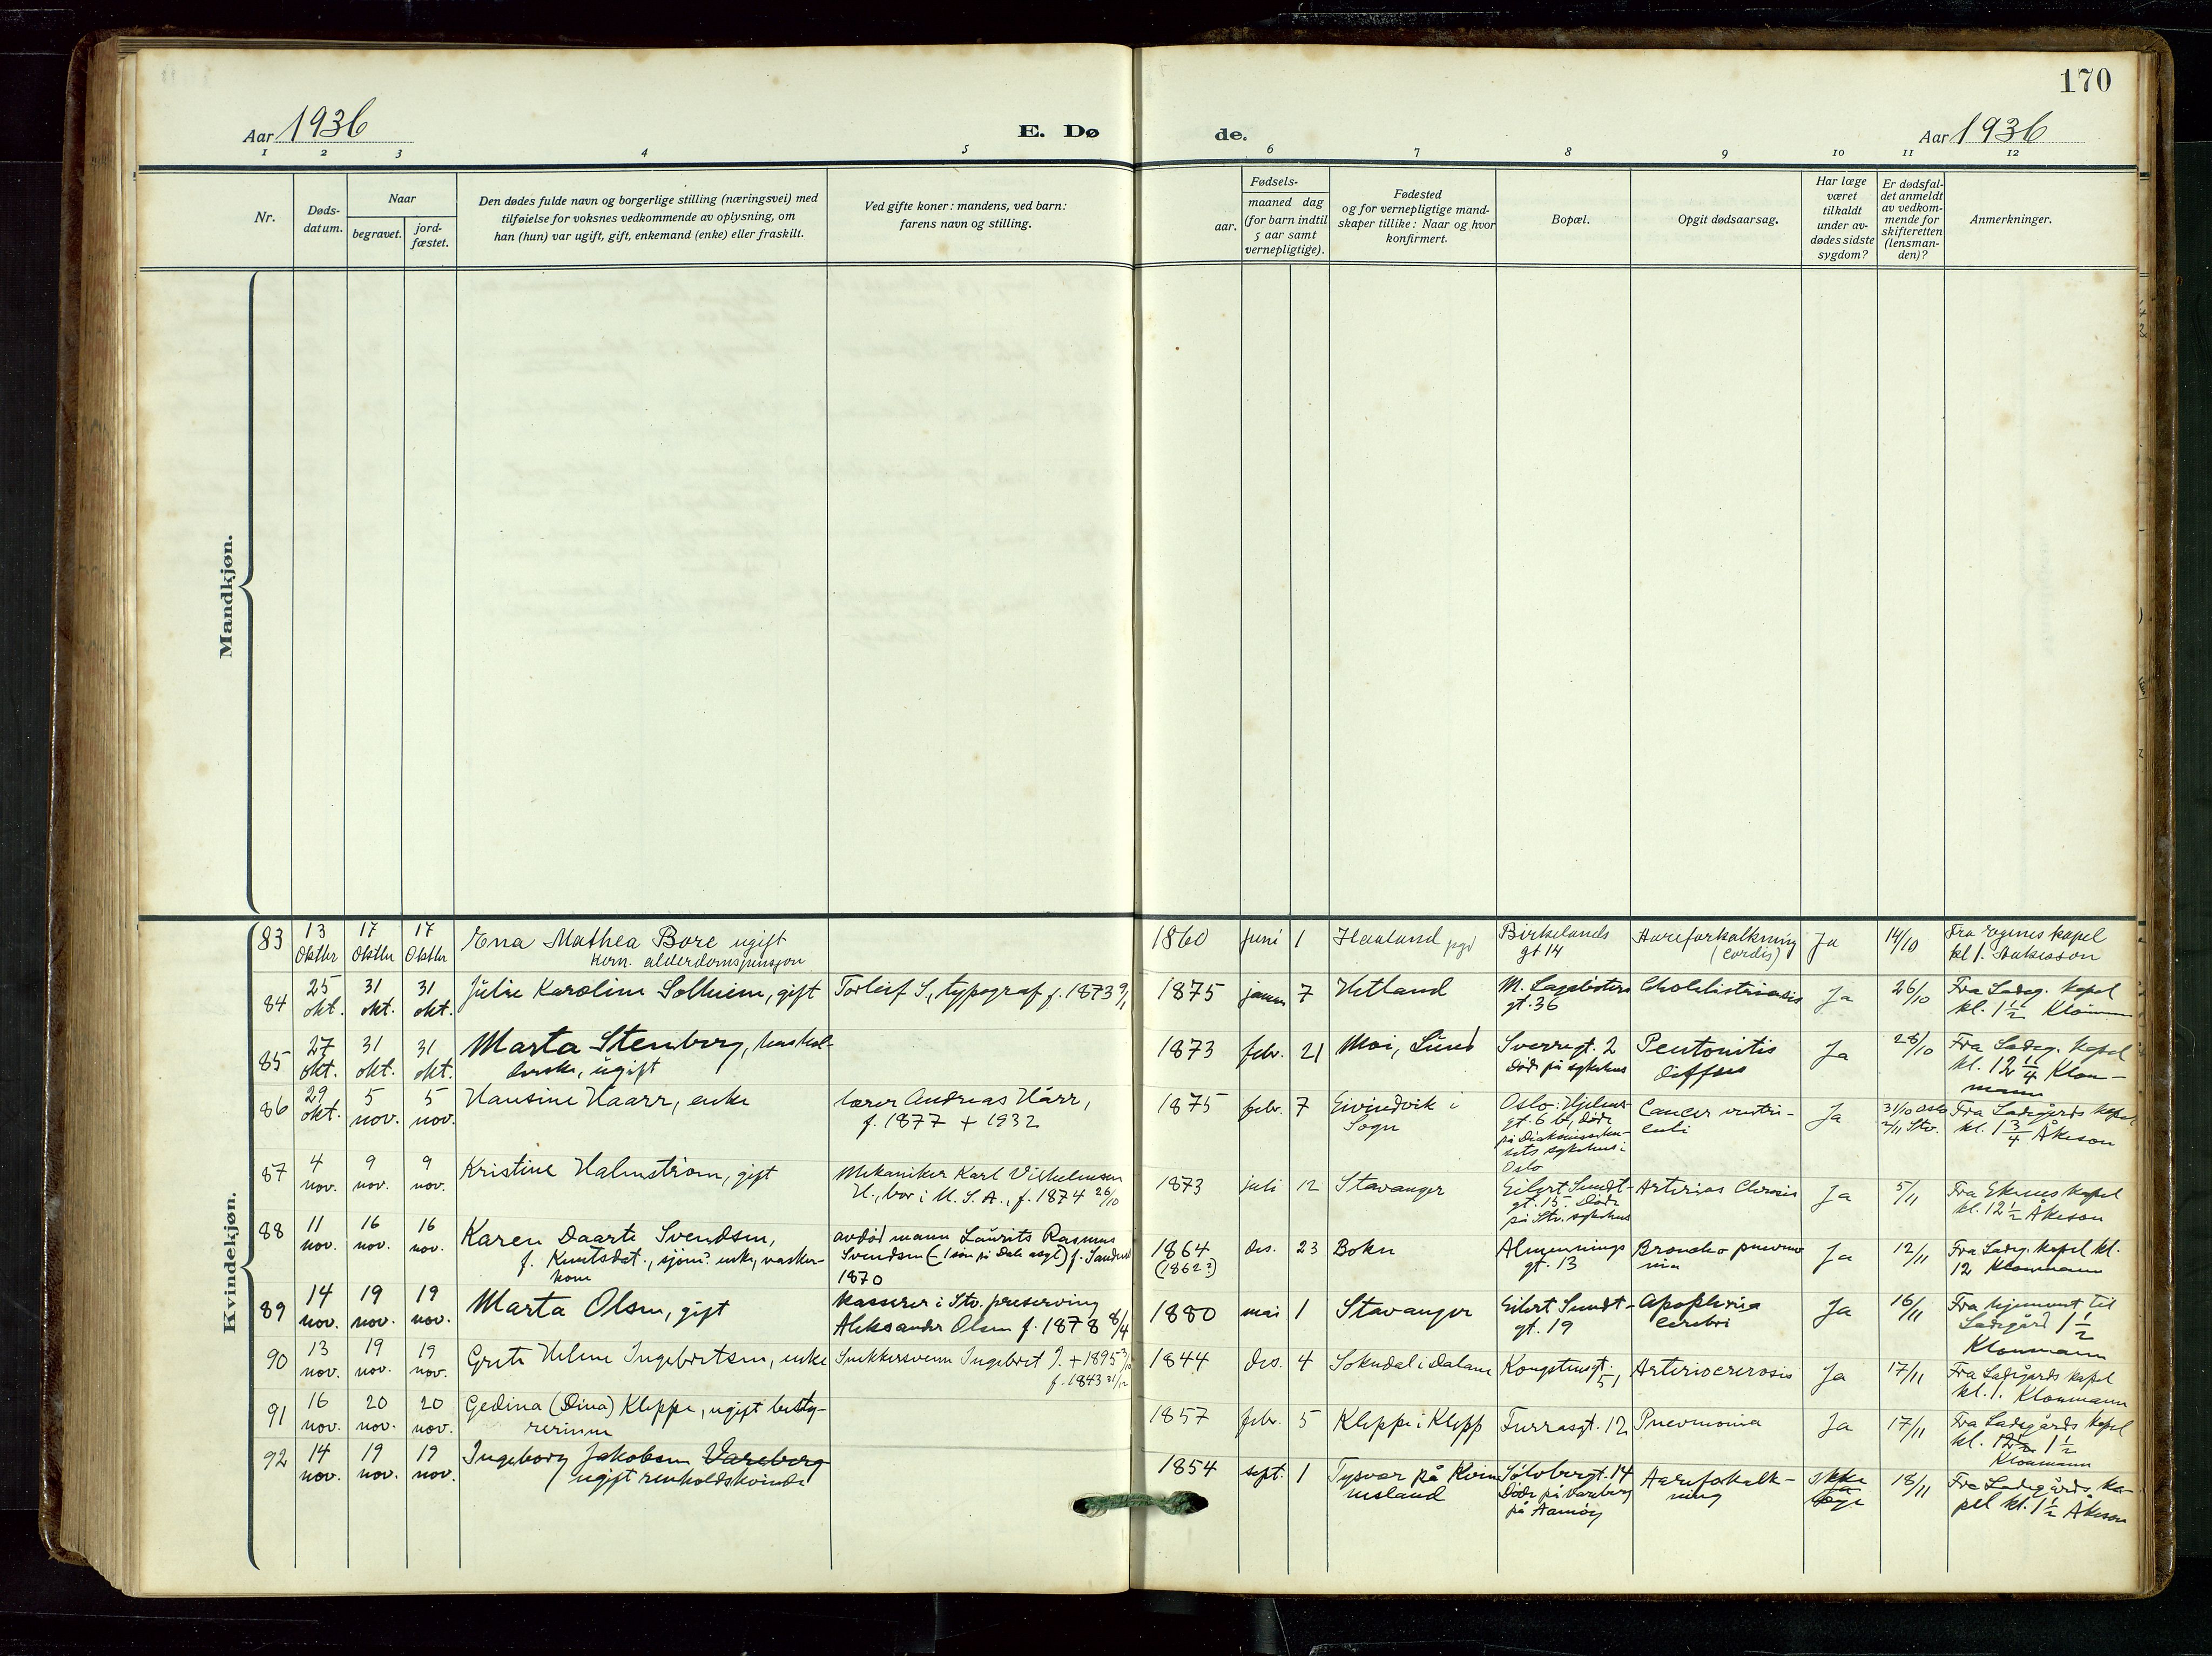 170
Aar 1936
E. Dø
de.
Aar 1936
1 2 3 4 5 6 7 8 9 10 11 12
Nr.
Døds-
datum.
Naar
begravet.
jord-
fæstet.
Den dødes fulde navn og borgerlige stilling (næringsvei) med
tilføielse for voksnes vedkommende av oplysning, om
han (hun) var ugift, gift, enkemand (enke) eller fraskilt.
Ved gifte koner: mandens, ved barn:
farens navn og stilling.
Fødsels-
aar.
maaned dag
(for barn indtil
5 aar samt
vernepligtige).
Fødested
og for vernepligtige mand-
skaper tillike: Naar og hvor
konfirmert.
Bopæl.
Opgit dødsaarsag.
Har læge
været
tilkaldt
under av-
dødes sidste
sygdom?
Er dødsfal-
det anmeldt
av vedkom-
mende for
skifteretten
(lensman-
den)?
Anmerkninger.
Mandkjøn.
Kvindekjøn.
83 13 Oktbr 17 Oktbr 17 Oktbr Mathea Bore ugift
Kom. alderdomspensjon
1860 juni 1 Haaland pgd Birkelands
gt 14 Aareforkalkning
(cordis) Ja 14/10 Fra kapel
kl 1.
84 25 okt. 31 okt. 31 okt. Julie Karoline Solheim, gift Torleif S., typograf f. 1873
1875 7 Hetland M.
gt. 36 Ja 26/10 Fra Ladeg. kapel
kl. 1 1/2
85 27 okt. 31 okt. 31 okt. Marta Stenberg, hushol-
derske, ugift
1873 febr. 21 Moi, Lund Sverregt. 2
Døde på sykehus Peritonitis
diffus Ja 28/10 Fra Ladeg. kapel
kl. 12 1/4 Klou-
mann
86 29 okt. 5 nov. 5 nov. Hansine Haarr, enke lærer Andreas Hårr,
f. 1877 + 1932
1875 febr. 7 Eivindvik i
Sogn Oslo: Hjelms-
gt. 6 b, døde
på
sykehus i
Oslo Cancer ventri-
culi Ja 31/10 Oslo
2/11 Stv. Fra Ladegårds kapel
kl. 1 3/4 Åkeson
87 4 nov. 9 nov. 9 nov. Kristine Halmstrøm, gift Mekaniker Karl Vilhelmsen
H., bor i U.S.A., f. 1874 26/10
1873 juli 12 Stavanger Eilert Sundt-
gt. 15. Døde
på Stv. sykehus Ja 5/11 Fra Ekenes kapel
kl. 12 1/2 Åkeson
88 11 nov. 16 nov. 16 nov. Karen Daarte Svendsen,
f. Knutsdat., sjøm. enke, vasker-
kone avdød mann Laurits Rasmus
Svendsen (1 søn på Dale asyl) f.
1870
1864
(1862?) des. 23 Bokn Almennings
gt. 13 Broncho pneumo
nia Ja 12/11 Fra Ladeg. kapel kl.
12 Kloumann
89 14 nov. 19 nov. 19 nov. Marta Olsen, gift Kasserer i Stv. preserving
Aleksander Olsen f. 1878 8/4
1880 mai 1 Stavanger Eilert Sundt-
gt. 19 Apoplexia
cerebri Ja 16/11 Fra hjemmet til
Ladegård 1 1/2
Kloumann
90 13 nov. 19 nov. 19 nov. Grete Helene Ingebretsen, enke Snekkersvenn Ingebret I. + 1895
f. 1843 31/12
1844 des. 4 Sokndal i Dalane Kongstensgt.
51 Ja 17/11 Fra Ladegårds kapel
kl. 1. Kloumann
91 16 nov. 20 nov. 20 nov. Gedina (Dina) Kleppe, ugift besty-
rerinne
1857 febr. 5 Kleppe i Klepp Furrasgt. 12 Pneumonia Ja 17/11 Fra Ladegårds kapel
kl. 12 1/2 1 1/2
Kloumann
92 14 nov. 19 nov. 19 nov. Ingeborg Jakobsen Vareberg
ugift renholdskvinde
1854 sept. 1 Tysvær på Kvin
nesland Sølvbergt. 14
Døde på Vareberg
på Aamøy Aareforkalk-
ning ikke
Ja
læge 18/11 Fra Ladegårds ka-
pel kl. 1 1/2 Åkeson